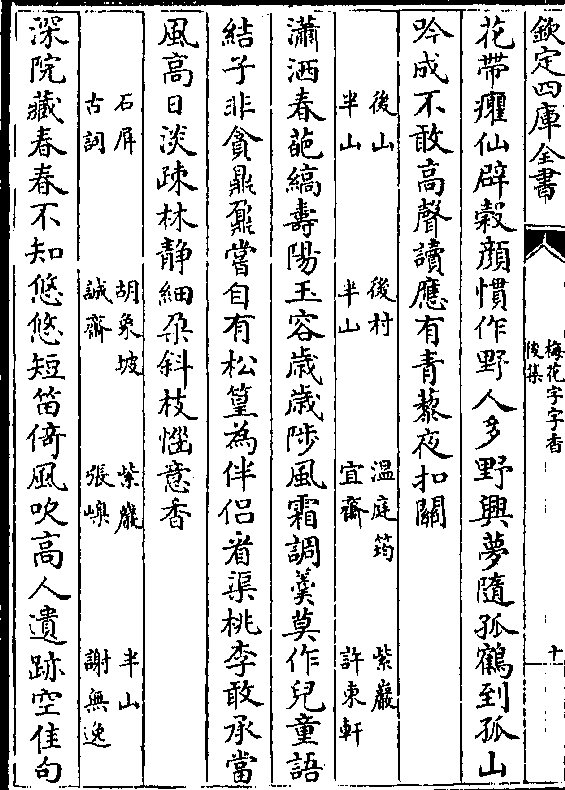 欽定四庫全書
梅花字字香
後集
十
花帶癯仙辟穀顔慣作野人多野興夢隨孤鶴到孤山
吟成不敢高聲讀應有青藜夜扣關
後山 後村 温庭筠 紫巖
半山 半山 宜齋 許東軒
瀟洒春葩縞壽陽玉容歳歳陟風霜調羮莫作兒童語
結子非貪鼎鼐嘗自有松篁為伴侣肯渠桃李敢承當
風高日淡疎林静細朶斜枝惱意香
石屏 胡象坡 紫巖 半山
古詞 誠齋 張嶼 謝無逸
深院藏春春不知悠悠短笛倚風吹高人遺跡空佳句